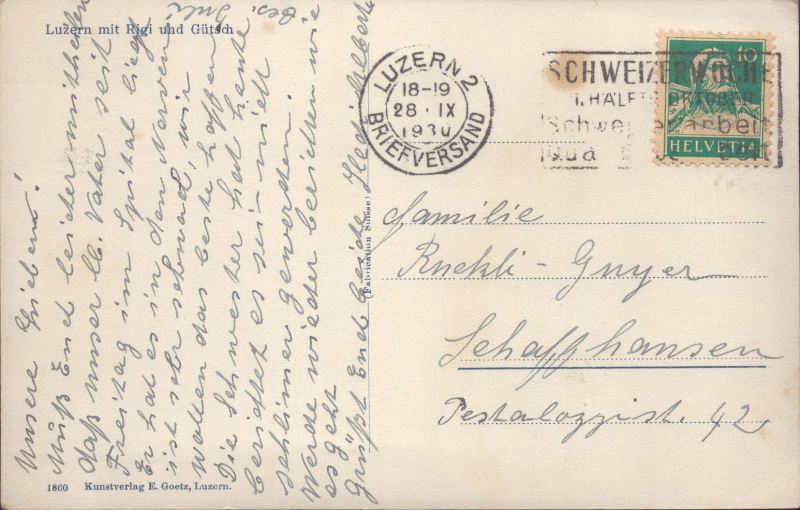 Luzern mit Rigi und Gütsch
Unsere Lieben!
Muß Euch leider mitteilen
daß unser lb. Vater seit
Freitag im Spital liegt
Er hat es in den Nerven
ist sehr schwach, wir
wollen das beste hoffen
Die Schwester hat heute
berichtet es sei nicht
schlimer geworden.
Werde wieder berichten wie
es geht
Grüßt Euch beide
1860 Kunstverlag E. Goetz, Luzern.
(Fabrication Suisse)
LUZERN 2
18-19
28·IX
1930
BRIEFVERSAND
SCHWEIZERWOCHE
1. HÄLFTE OKTOBER
Schweizerarbeit
10
HELVETIA
Familie
Ruekli-Guyer
Schaffhausen
Pestalozzistr. 42